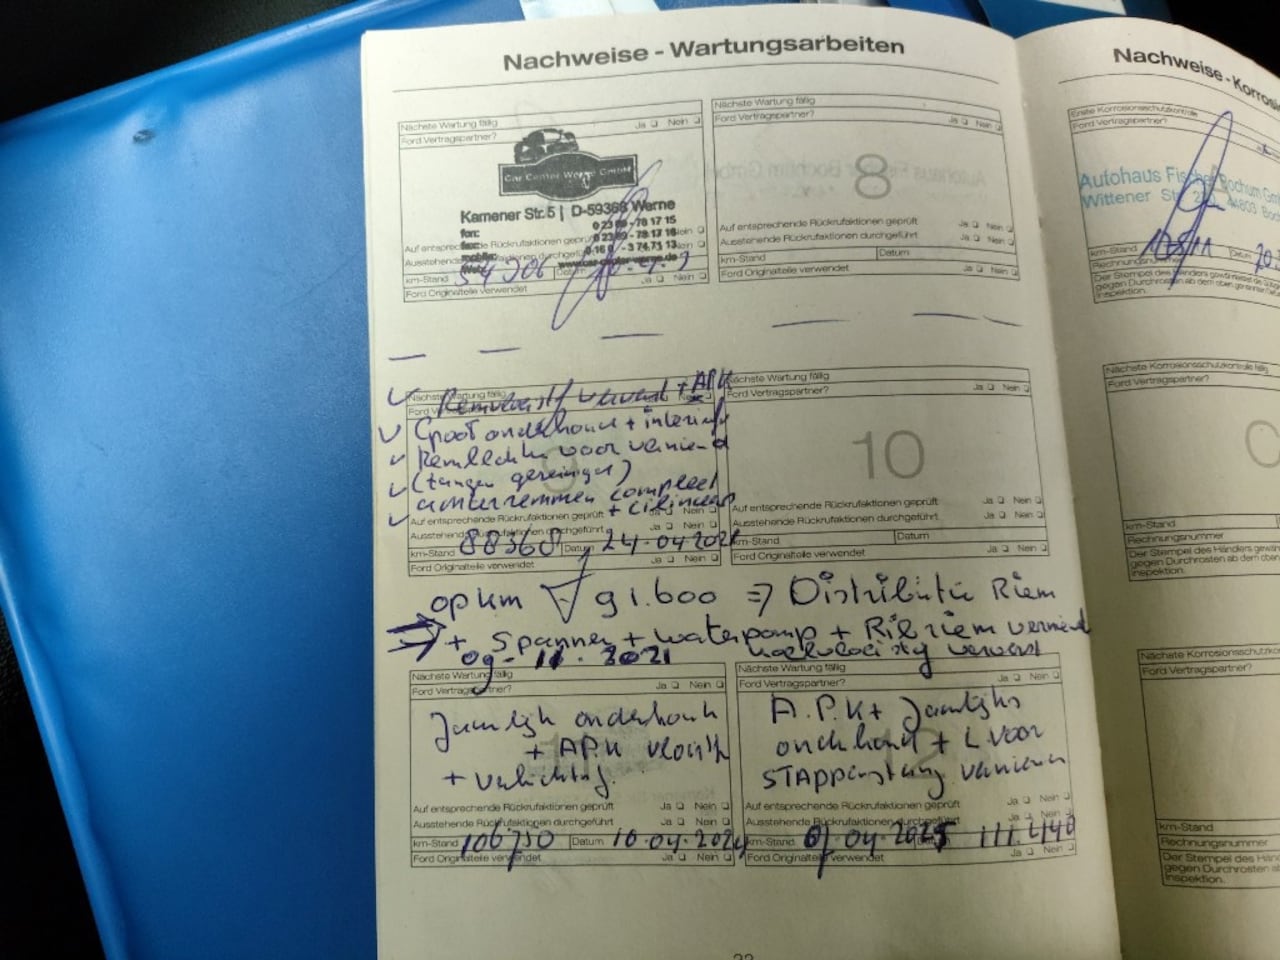 Nachweise - Wartungsarbeiten
Nächste Wartung fällig
Ford Vertragspartner? Ja Nein
Car Center Werne GmbH
Kamener Str. 5 | D-59368 Werne
fon: 0 23 89 - 78 17 15
fax:
mobile:
Web: www.car-center-werne.de
Auf entsprechende Rückrufaktionen geprüft
Ausstehende Rückrufaktionen durchgeführt
km-Stand Datum
Ford Originalteile verwendet Ja Nein
Nächste Wartung fällig
Ford Vertragspartner? Ja Nein
8
Auf entsprechende Rückrufaktionen geprüft Ja Nein
Ausstehende Rückrufaktionen durchgeführt Ja Nein
km-Stand Datum
Ford Originalteile verwendet Ja Nein
Nächste Wartung fällig
Ford
Remvloeistof ververst + APK
Groot onderhoud + interieurf
Remblokken voor vernieuwd
(tangen gereinigd)
achterremmen compleet
+ cilinders
Auf entsprechende Rückrufaktionen geprüft Ja Nein
Ausstehende Rückrufaktionen durchgeführt Ja Nein
km-Stand 88368 Datum 24-04-202
Ford Originalteile verwendet Ja Nein
Nächste Wartung fällig
Ford Vertragspartner? Ja Nein
10
Auf entsprechende Rückrufaktionen geprüft Ja Nein
Ausstehende Rückrufaktionen durchgeführt Ja Nein
km-Stand Datum
Ford Originalteile verwendet Ja Nein
op km 91.600 => Distributie Riem
+ Spanner + waterpomp + Ribriem vernieuwd
09-11-2021 koelvloeistof ververst
Nächste Wartung fällig
Ford Vertragspartner? Ja Nein
Jaarlijk onderhoud
+ APK
+ verlichting.
Auf entsprechende Rückrufaktionen geprüft Ja Nein
Ausstehende Rückrufaktionen durchgeführt Ja Nein
km-Stand 106750 Datum 10-04-2024
Ford Originalteile verwendet Ja Nein
Nächste Wartung fällig
Ford Vertragspartner? Ja Nein
A.P.K + Jaarlijks
onderhoud + L voor
12
Auf entsprechende Rückrufaktionen geprüft Ja Nein
Ausstehende Rückrufaktionen durchgeführt Ja Nein
km-Stand 04 2025 111.440
Ford Originalteile verwendet Ja Nein
Nachweise - Korrosi
Erste Korrosionsschutzkontrolle
Ford Vertragspartner?
Autohaus Fischer Bochum Gm
Wittener Str. 44803 Boc
km-Stand Datum
Rechnungsnummer
Der Stempel des Händlers gewährleistet die
gegen Durchrosten ab dem oben genannten
Inspektion.
Nächste Korrosionsschutzkontrolle fällig
Ford Vertragspartner?
km-Stand
Rechnungsnummer
Der Stempel des Händlers gewäh
gegen Durchrosten ab dem oben
Inspektion.
Nächste Korrosionsschutzkon
Ford Vertragspartner?
km-Stand
Rechnungsnummer
Der Stempel des Händ
gegen Durchrosten ab
Inspektion.